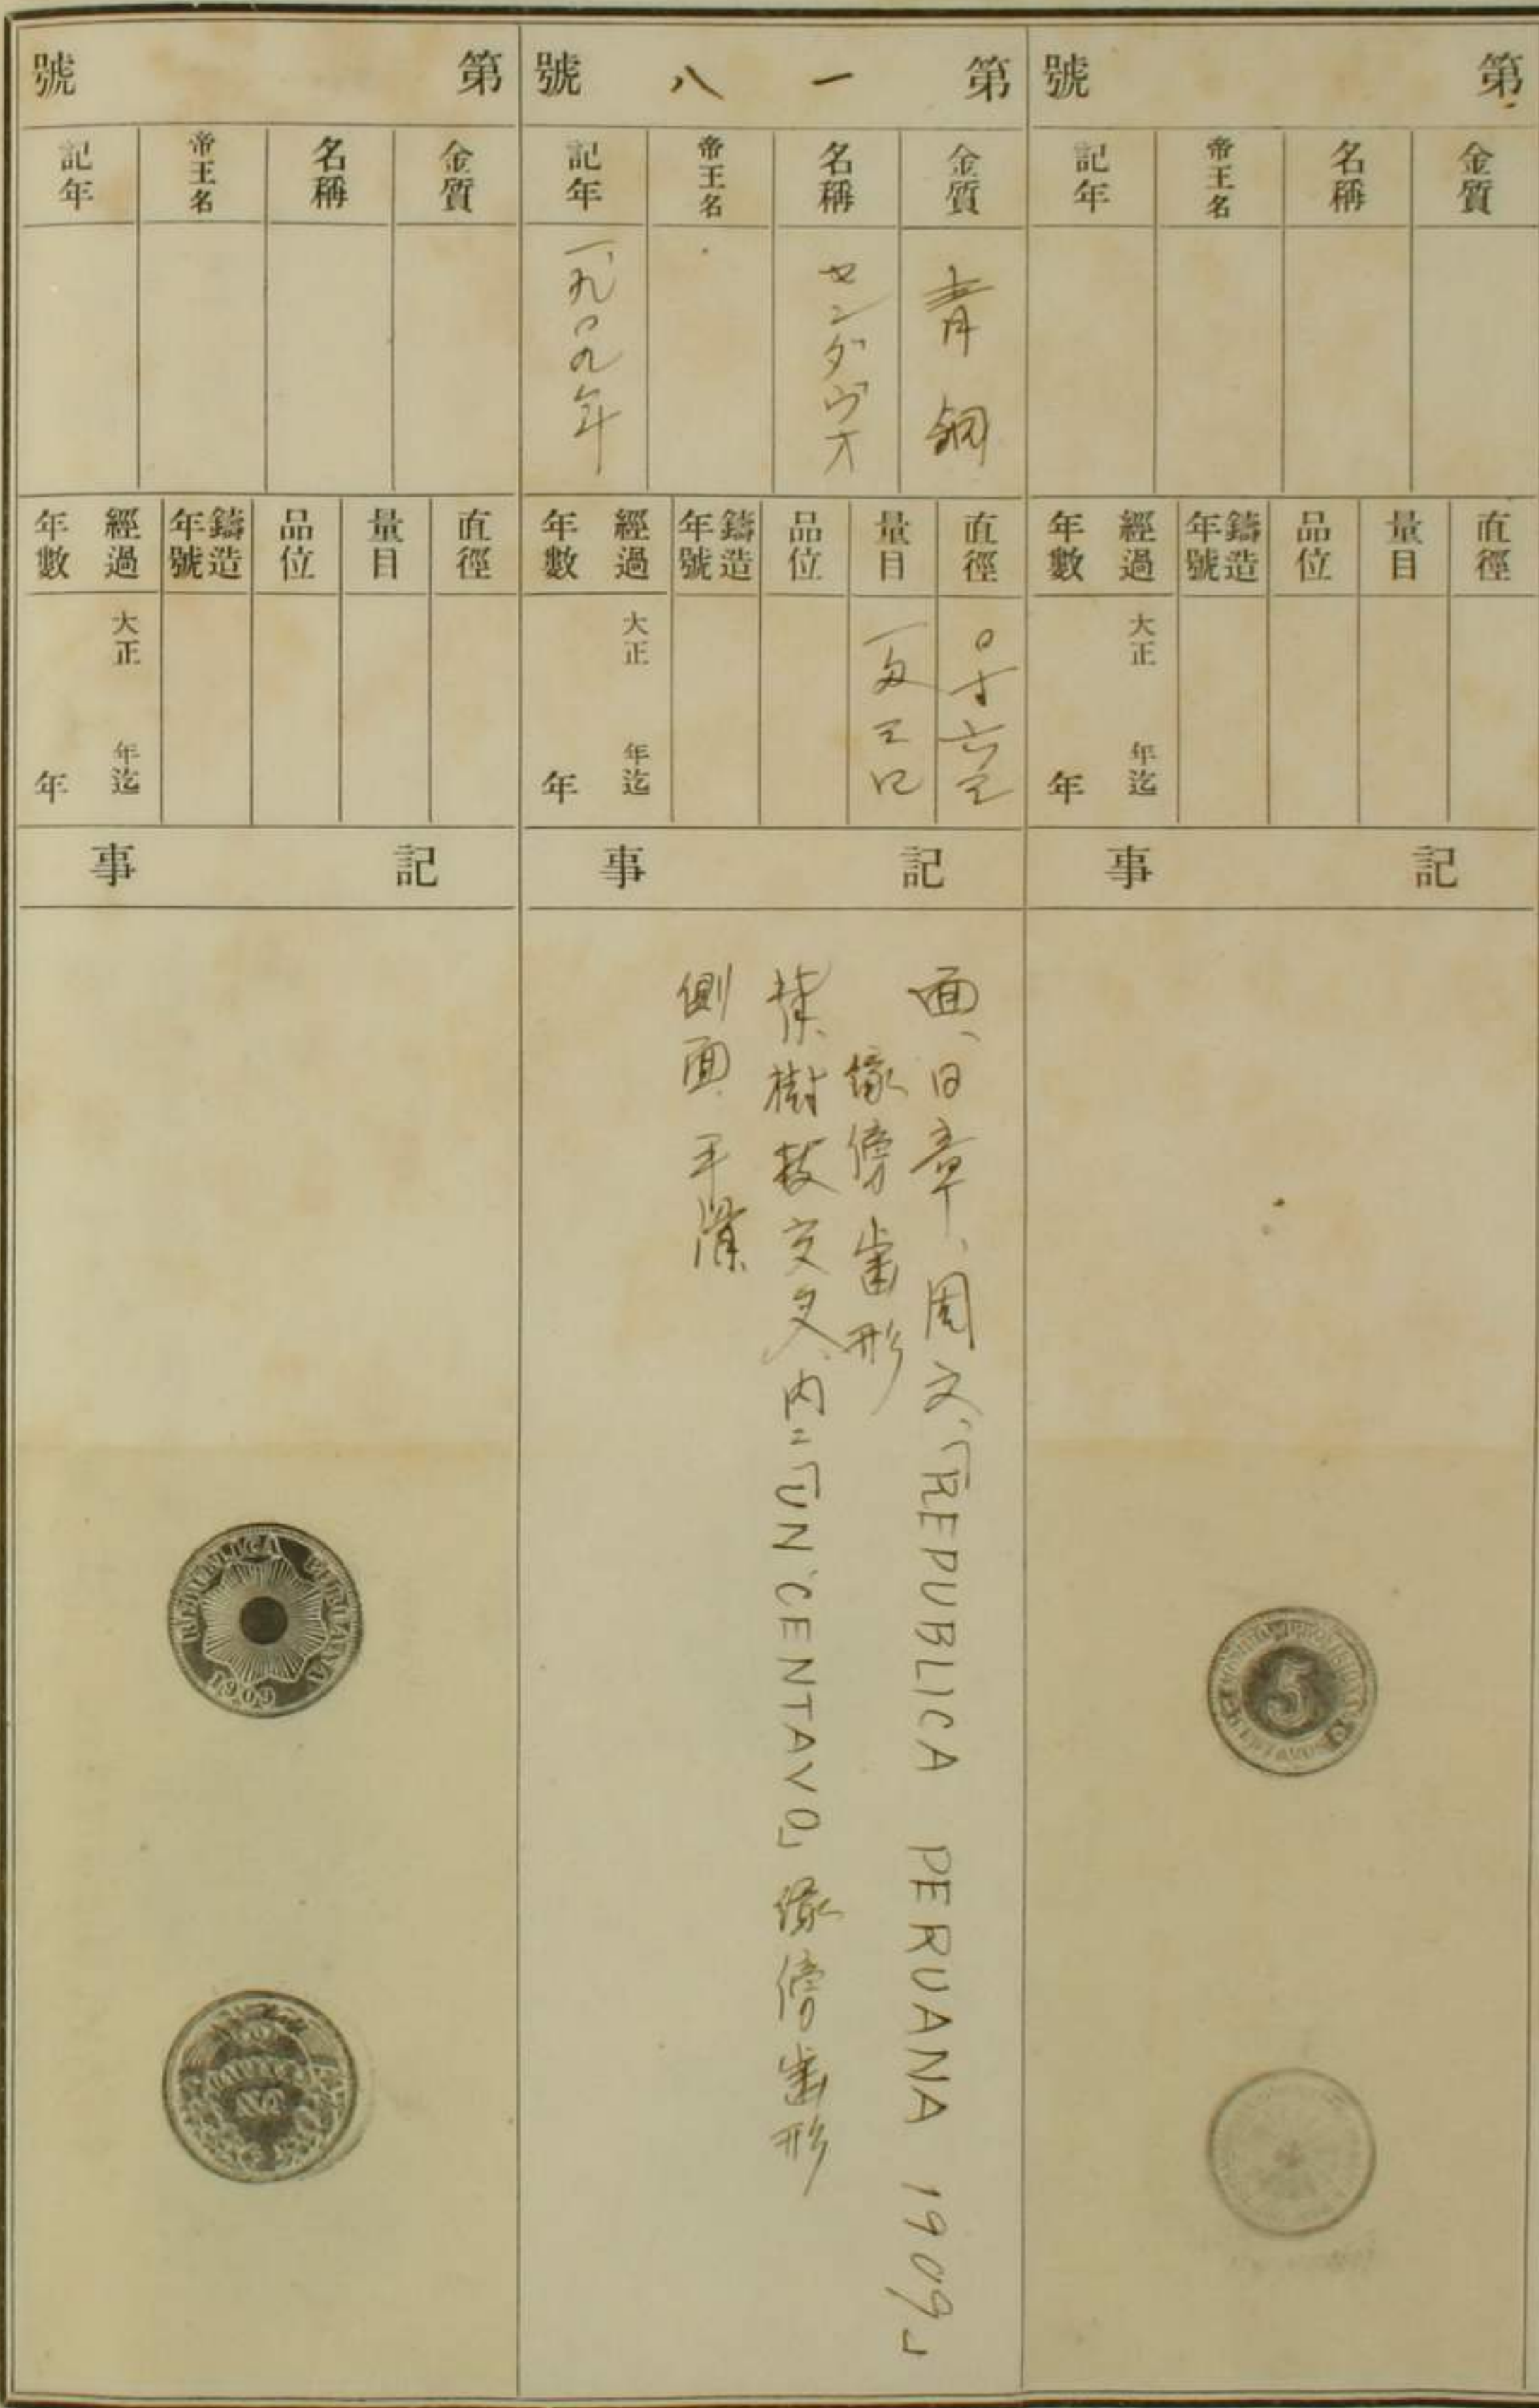 第 號
金質
名稱
帝王名
記年
直徑
量目
品位
鑄造年號
經過年數
大正 年迄
年
記事
5
第一八號
金質
青銅
名稱
センダヴオ
帝王名
記年
一九〇九年
直徑
〇寸六三
量目
品位
鑄造年號
經過年數
大正 年迄
年
記事
面、日章、周文「REPUBLICA PERUANA 1909」
縁傍歯形
樹枝交叉、内ニ「UN CENTAVO」縁傍歯形
側面平滑
第 號
金質
名稱
帝王名
記年
直徑
量目
品位
鑄造年號
經過年數
大正 年迄
年
記事
REPUBLICA PERUANA
1909